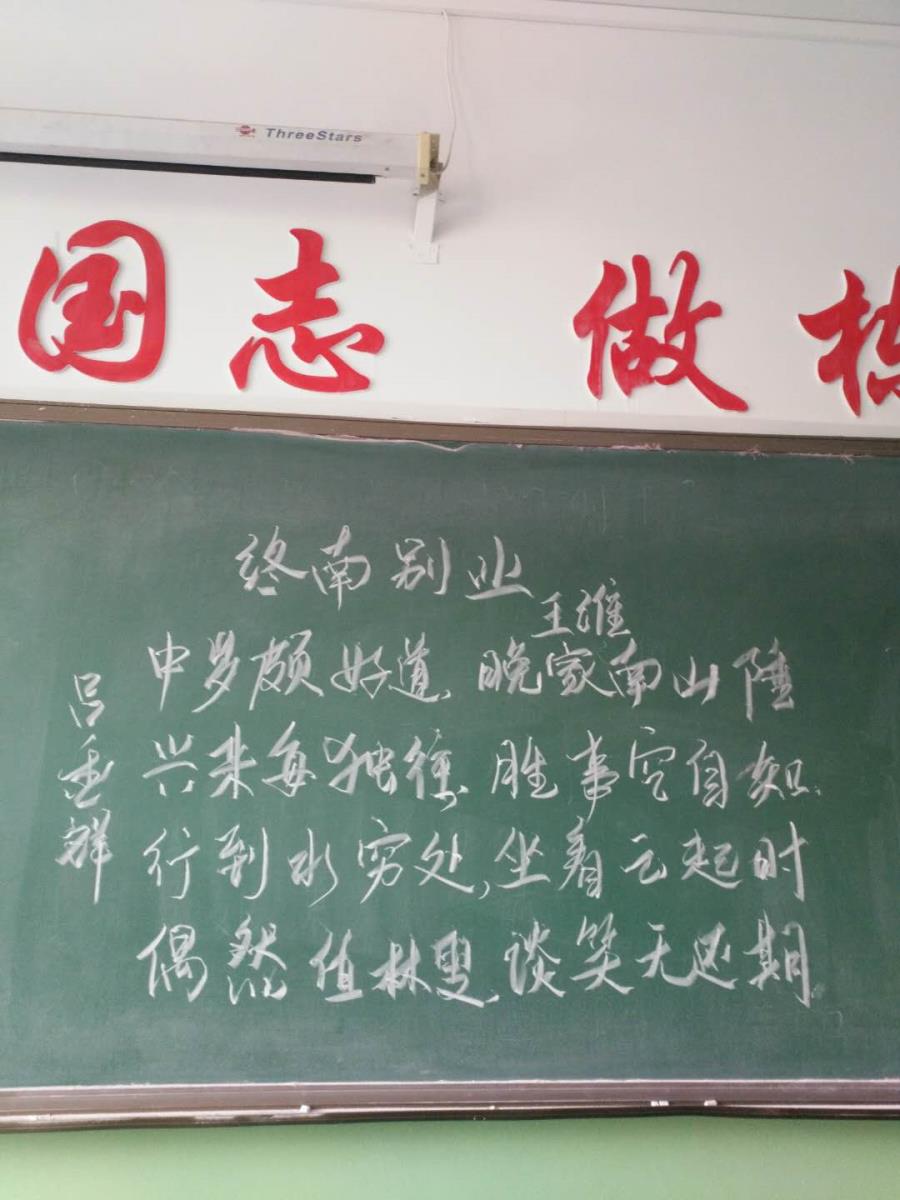 ThreeStars
国志 做
终南别业
王维
中岁颇好道 晚家南山陲
兴来每独往 胜事空自知
行到水穷处,坐看云起时
偶然值林叟 谈笑无还期
吕 祥